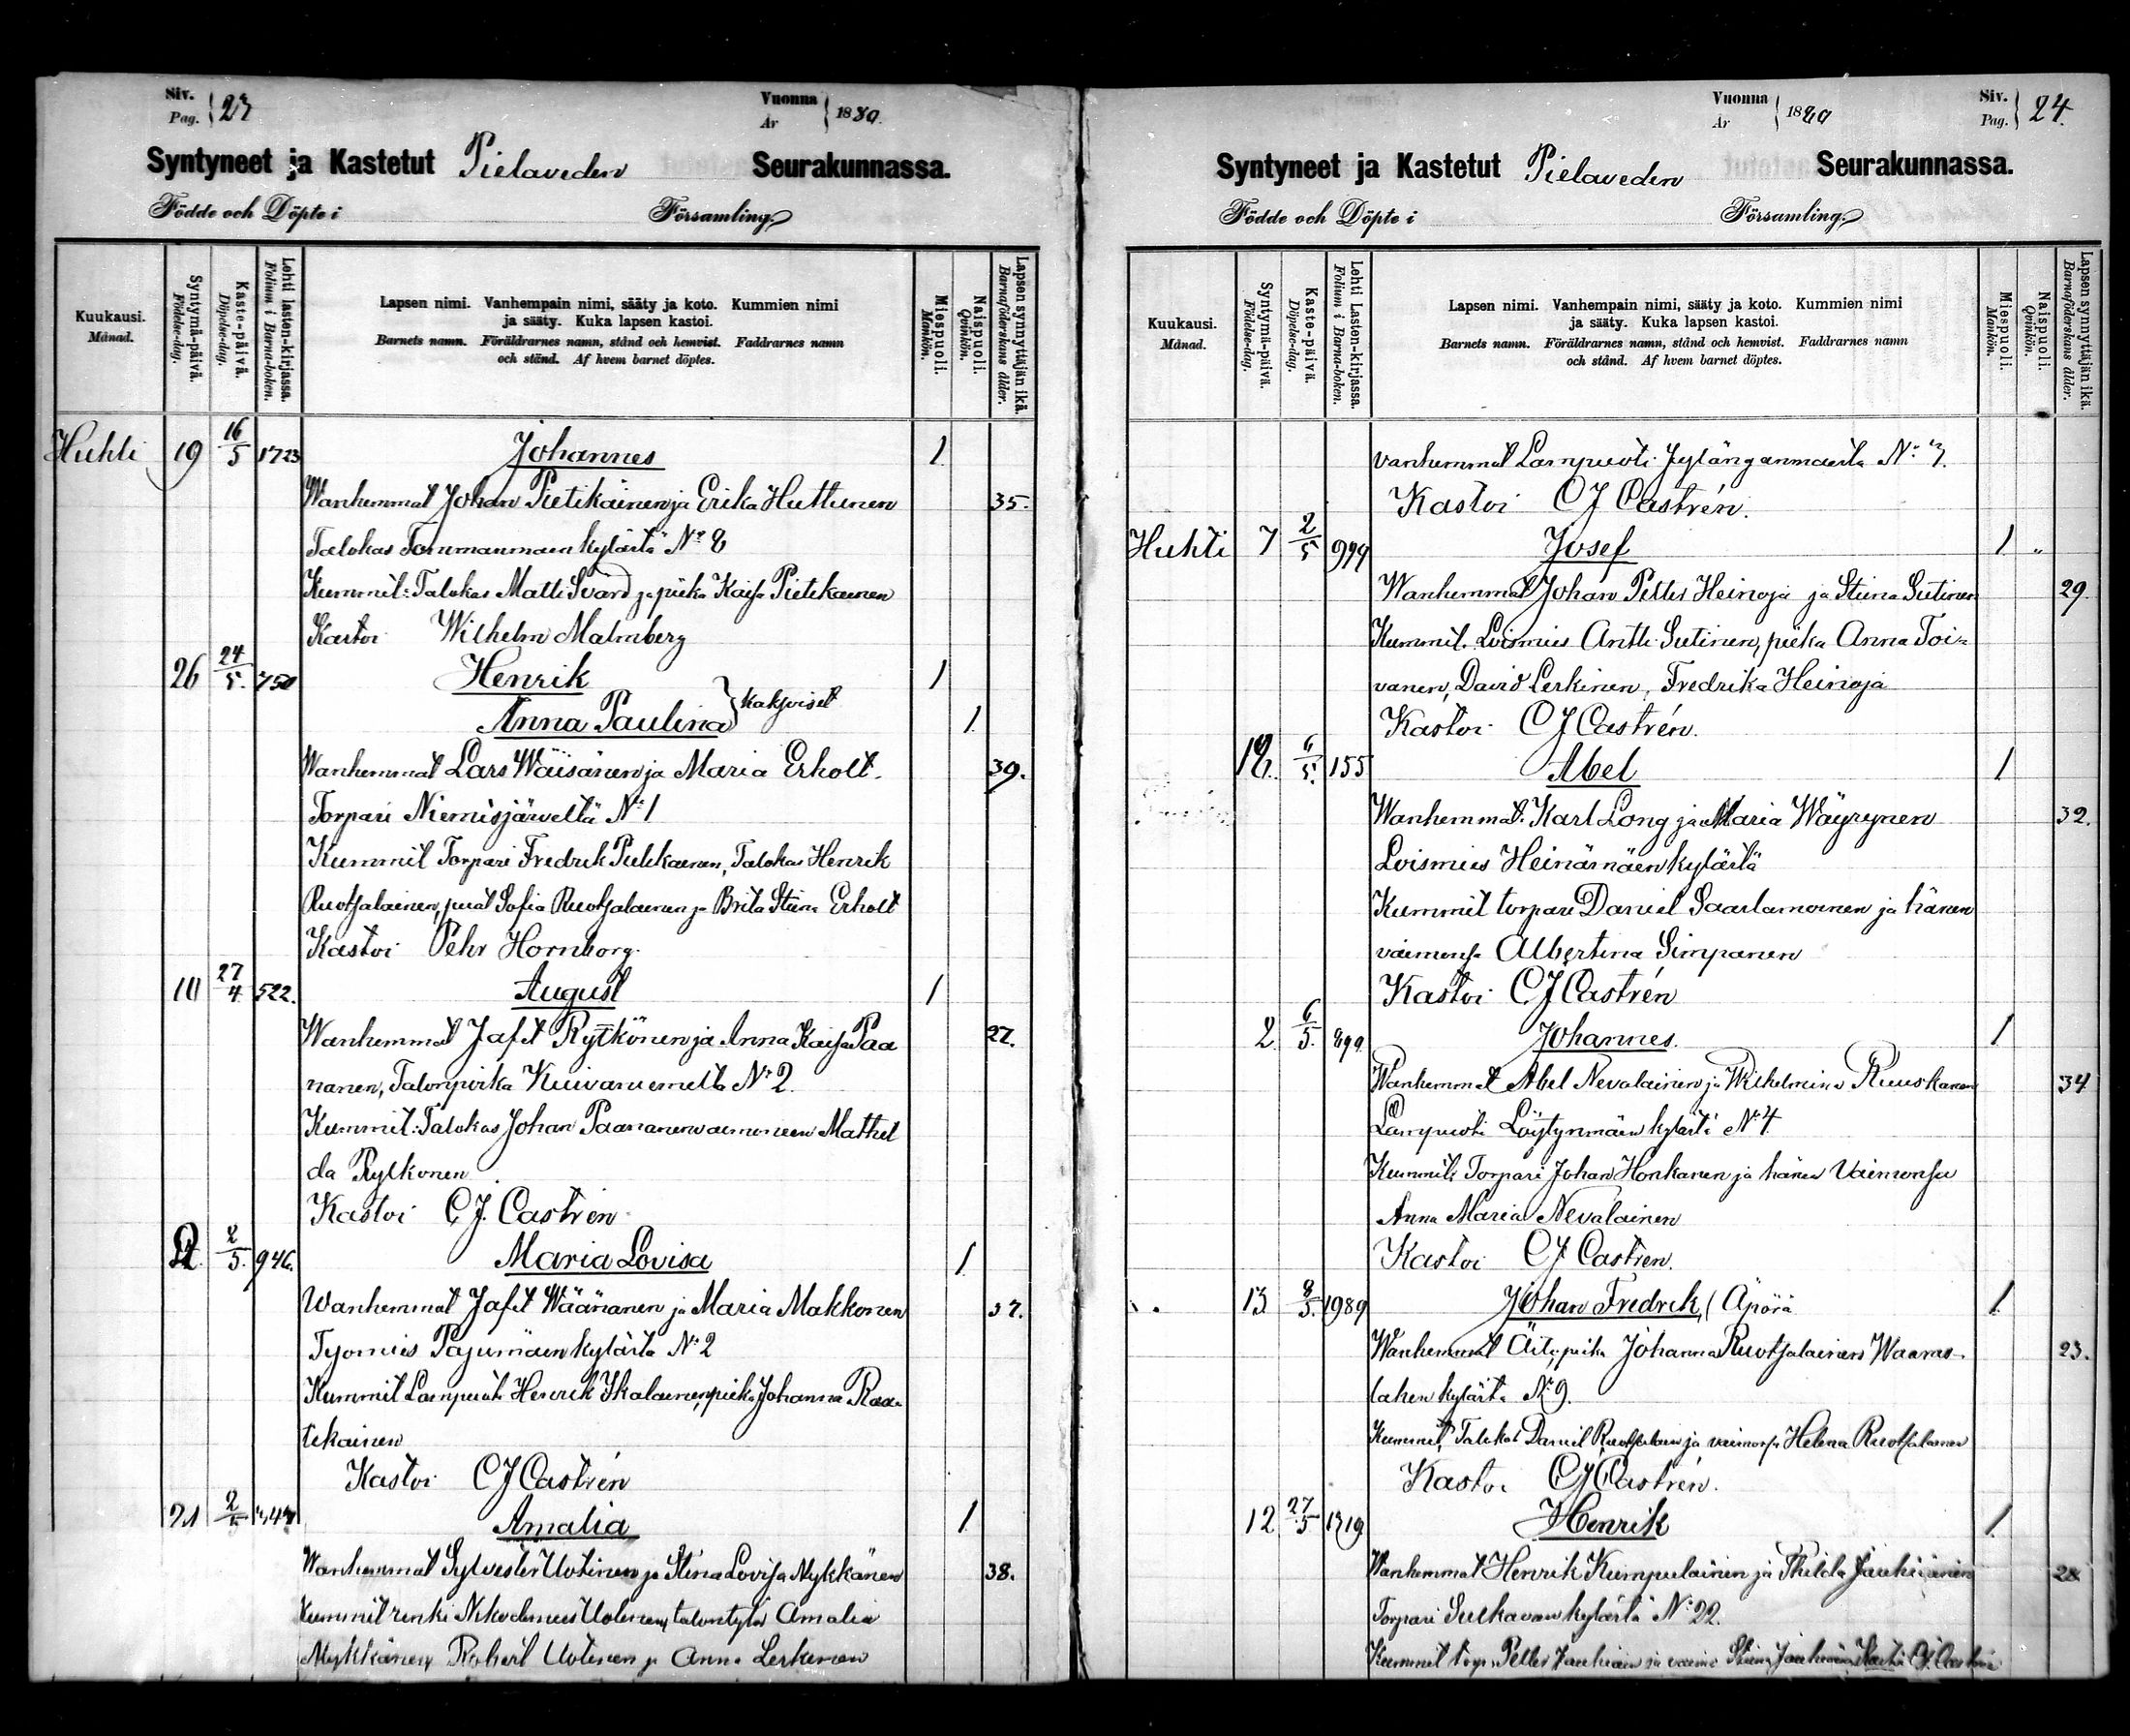 Siv. Pag. } 23
Vuonna År } 1880.
Syntyneet ja Kastetut Pielaveden Seurakunnassa.
Födde och Döpte i Församling.
Kuukausi. Månad.
Syntymä-päivä. Födelse-dag.
Kaste-päivä. Döpelse-dag.
Lehti lasten-kirjassa. Folium i Barna-boken.
Lapsen nimi. Vanhempain nimi, sääty ja koto. Kummien nimi
ja sääty. Kuka lapsen kastoi.
Barnets namn. Föräldrarnes namn, stånd och hemvist. Faddrarnes namn
och stånd. Af hvem barnet döptes.
Miespuoli. Mankön.
Naispuoli. Qvinkön.
Lapsen synnyttäjän ikä. Barnaföderskans ålder.
Huhti 19 16/5 1723 Johannes 1
Wanhemmat Johan Pietikäinen ja Erika Huttunen 35.
Talokas Tommanmäen kylästä No 8
Kummit: Talokas Matti Svärd ja piika Kaisa Pietikainen
Kastoi Wilhelm Malmberg
26 24/5. 750 Henrik 1
Anna Paulina } kaksoiset 1
Wanhemmat Lars Wäisänen ja Maria Erholt. 39.
Torpari Niemisjärveltä No 1
Kummit Torpari Fredrik Pulkkanen, Talokas Henrik
Ruotsalainen, piiat Sofia Ruotsalainen ja Brita Stina Erholt
Kastoi Pehr Hornborg.
10 27/4 522. August 1
Wanhemmat Jafet Rytkönen ja Anna Kaisa Paa
nanen, Talonpoika Kuivaniemeltä No 2.
Kummit: Talokas Johan Paananen vaimoneen Mathil
da Rytkonen
Kastoi C.J. Castrén
2/5. 946. Maria Lovisa 1
Wanhemmat Jafet Wäänanen ja Maria Makkonen 37.
Tyomies Pajumäen kylästä No 2
Kummit Lampuoti Henrik Ikalainen, piika Johanna Raa-
tikainen
Kastoi CJ Castrén
21 2/5 Amalia 1
Wanhemmat Sylvester Uotinen ja Stina Lovisa Mykkänen 38.
Kummit renki Nikodemus Uotinen, talontytär Amalia
Mykkänen, Robert Uotinen ja Anna Lerkinen
Vuonna År } 1880
Siv. Pag. } 24.
Syntyneet ja Kastetut Pielaveden Seurakunnassa.
Födde och Döpte i Församling.
Kuukausi. Månad.
Syntymä-päivä. Födelse-dag.
Kaste-päivä. Döpelse-dag.
Lehti Lasten-kirjassa. Folium i Barna-boken.
Lapsen nimi. Vanhempain nimi, sääty ja koto. Kummien nimi
ja sääty. Kuka lapsen kastoi.
Barnets namn. Föräldrarnes namn, stånd och hemvist. Faddrarnes namn
och stånd. Af hvem barnet döptes.
Miespuoli. Mankön.
Naispuoli. Qvinkön.
Lapsen synnyttäjän ikä. Barnaföderskans ålder.
vanhemmat Lampuoti No 3.
Kastoi CJ Castrén.
Huhti 7 2/5 999 Josef 1 "
Wanhemmat Johan Petter Heinoja ja Stiina Sutinen 29.
Kummit. Loismies Antti Sutinen, piika Anna Toi-
vanen, David Lerkinen, Fredrika Heinoja
Kastoi CJ Castrén.
6/5. 155 Abel 1
Wanhemmat. Karl Long ja Maria Wäyrynen 32.
Loismies Heinämäen kylästä
Kummit torpari Daniel Saarlamoinen ja hänen
vaimonsa Albertina Simpanen
Kastoi CJ Castrén
2. 6/5. 899. Johannes. 1
Wanhemmat Abel Nevalainen ja Wilhelmina Ruuskanen 34
Lampuoti Löytynmäen kylästä No 4
Kummit: Torpari Johan Honkanen ja hänen Vaimonsa
Anna Maria Nevalainen
Kastoi CJ Castren.
13 8/5. 1989 Johan Fredrik, (Äpörä 1
Wanhemmat Äiti, piika Johanna Ruotsalainen Waaras- 23.
lahen kylästä No 9.
Kummit, Talokas Daniel Ruotsalainen ja vaimonsa Helena Ruotsalainen
Kastoi CJ Castrén.
12 27/5 1719 Henrik 1
Wanhemmat Henrik Kumpulainen ja Thilda Jauhiainen 28
Torpari Sulkavan kylästä No 22.
Kummit torp. Petter Jauhiain ja vaimo Stina Jauhiain Kastoi CJ. Castrén